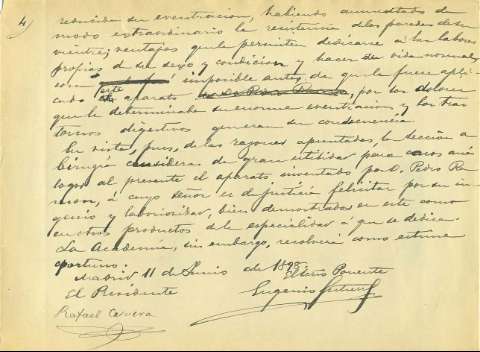 4)
reducida su eventracion, habiendo aumentado de
modo extraordinario la resistencia de las paredes del
vientre; ventajas que le permiten dedicarse a las labores
propias de su sexo y condicion y hacer su vida normal,
cosa imposible antes de que le fuese apli-
cado este aparato por los dolores
que le determinaba su enorme eventracion y los tras-
tornos digestivos generan su consecuencia.
En vista, pues, de las razones apuntadas, la Seccion de
Cirugía considera de gran utilidad para casos aná-
logos al presente el aparato inventado por D. Pedro Ra-
mon, á cuyo señor es de justicia felicitar por su in-
genio y laboriosidad, bien demostradas en este como
en otros productos de la especialidad á que se dedica.
La Academia, sin embargo, resolverá como estime
oportuno.
Madrid 11 de Junio de
El Presidente
Ponente
Rafael Cervera
Eugenio